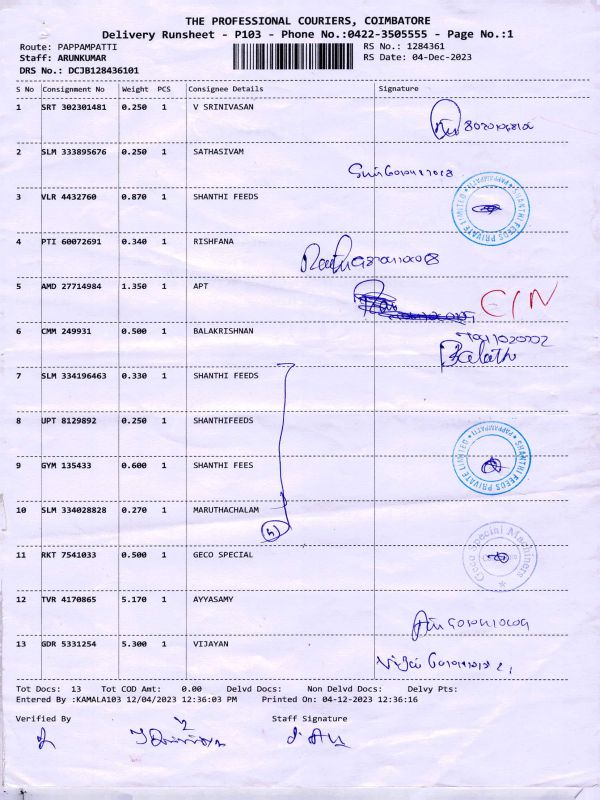 THE PROFESSIONAL COURIERS, COIMBATORE
Delivery Runsheet - P103 - Phone No.:0422-3505555 - Page No.:1
Route: PAPPAMPATTI RS No.: 1284361
Staff: ARUNKUMAR RS Date: 04-Dec-2023
DRS No.: DCJB128436101
S No Consignment No Weight PCS Consignee Details Signature
1 SRT 302301481 0.250 1 V SRINIVASAN
2 SLM 333895676 0.250 1 SATHASIVAM
3 VLR 4432760 0.870 1 SHANTHI FEEDS
SHANTHI FEEDS PRIVATE LIMITED * PAPPAMPATTI *
4 PTI 60072691 0.340 1 RISHFANA
5 AMD 27714984 1.350 1 APT
6 CMM 249931 0.500 1 BALAKRISHNAN
7 SLM 334196463 0.330 1 SHANTHI FEEDS
8 UPT 8129892 0.250 1 SHANTHIFEEDS
SHANTHI FEEDS PRIVATE LIMITED * PAPPAMPATTI *
9 GYM 135433 0.600 1 SHANTHI FEES
10 SLM 334028828 0.270 1 MARUTHACHALAM
11 RKT 7541033 0.500 1 GECO SPECIAL
Geco Special Machines *
12 TVR 4170865 5.170 1 AYYASAMY
13 GDR 5331254 5.300 1 VIJAYAN
Tot Docs: 13 Tot COD Amt: 0.00 Delvd Docs: Non Delvd Docs: Delvy Pts:
Entered By :KAMALA103 12/04/2023 12:36:03 PM Printed On: 04-12-2023 12:36:16
Verified By Staff Signature